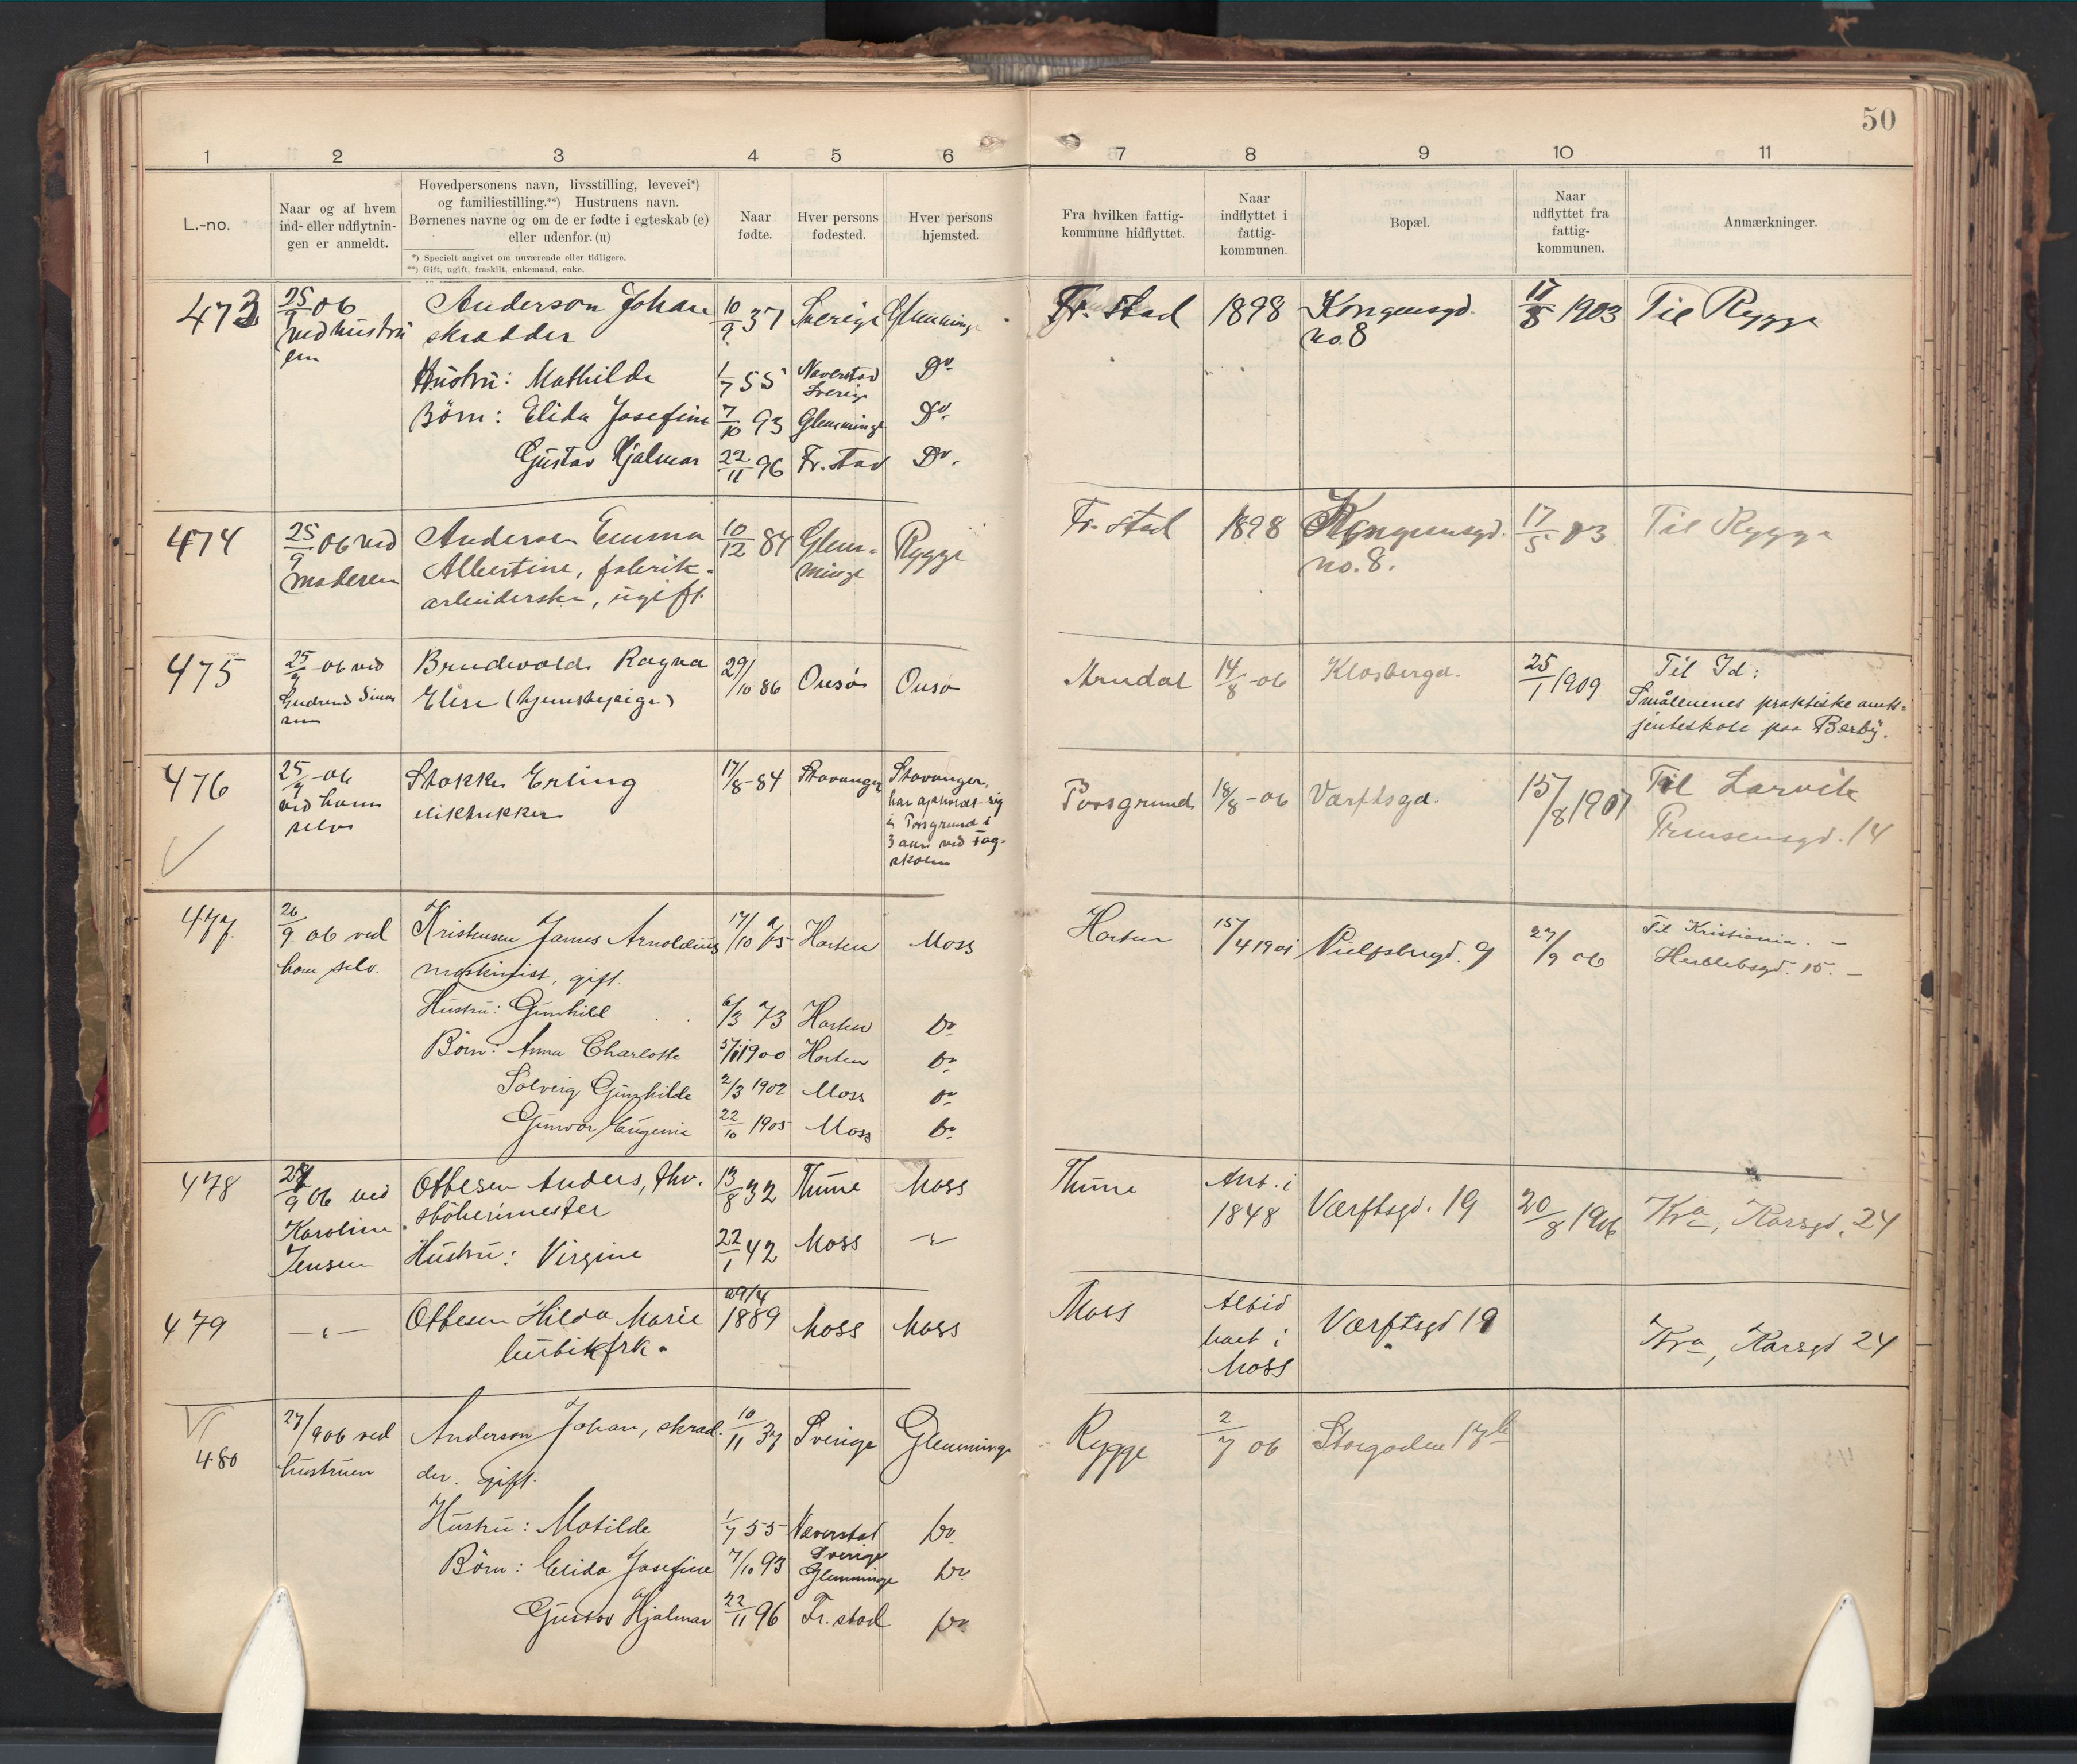 50
1 2 3 4 5 6 7 8 9 10 11
L.-no.
Naar og af hvem
ind- eller udflytnin-
gen er anmeldt.
Hovedpersonens navn, livsstilling, levevei*)
og familiestilling.**) Hustruens navn.
Børnenes navne og om de er fødte i egteskab (e)
eller udenfor. (u)
*) Specielt angivet om nuværende eller tidligere.
**) Gift, ugift, fraskilt, enkemand, enke.
Naar
fødte.
Hver persons
fødested.
Hver persons
hjemsted.
Fra hvilken fattig-
kommune hidflyttet.
Naar
indflyttet i
fattig-
kommunen.
Bopæl.
Naar
udflyttet fra
fattig-
kommunen.
Anmærkninger.
473 25/9 06 Anderson Johan 10/9 37 Sverige Glemminge Fr. stad 1898 Kongensgd. 17/5 1903 Til Rygge
ved hustru skrædder no. 8
en
Hustru: Mathilde 1/7 55 Naverstad Do.
Sverige
Børn: Elida Josefine 7/10 93 Glemminge Do.
Gustav Hjalmar 22/11 96 Fr. stad Do.
474 25/9 06 ved Andersen Emma 10/12 84 Glem- Rygge Fr. stad 1898 Kongensgd. 17/5 03 Til Rygge
moderen Albertine, fabrik- minge no. 8.
arbeiderske, ugift
475 25/9 06 ved Brudvold Ragna 29/10 86 Onsø Onsø Arendal 14/8 -06 Klosbergd. 25/1 1909 Til Id:
Elise (tjenestepige) Smålenenes praktiske amts-
jenteskole paa Berby.
476 25/9 -06 Stokke Erling 17/8 -84 Stavanger Stavanger, Porsgrund 18/8 -06 Værftsgd. 15/8 1907 Til Larvik
ved ham har opholdt sig
selv i Porsgrund i Prinsensgd. 14
3 aar ved Fag-
skolen
477. 26/9 06 ved Kristensen James Arnoldius 17/10 75 Horten Moss Horten 15/4 1901 9 27/9 06 Til Kristiania. -
ham selv. maskinist, gift. Herslebsgd. 15. -
Hustru: Gunhild 6/3 73 Horten Do.
Børn: Anna Charlotte 1900 Horten Do.
Solveig Gunhilde 2/3 1902 Moss Do.
Gunvor Eugenie 22/10 1905 Moss Do.
478 9 06 ved Ottesen Anders, fhv. 13/8 32 Thune Moss Thune Ank. i Værftsgd. 19 20/8 1906 Kra, Karsgd. 24
Karoline støberimester 1848
Jensen Hustru: Virgine 22/1 42 Moss -"-
479 -"- Ottesen Hilda Marie 29/4 1889 Moss Moss Moss Altid Værftsgd 19 Kra, Karsgd 24
butikfrk. boet i
Moss
480 27/9 06 ved Anderson Johan, skræd- 10/11 37 Sverige Glemminge Rygge 2/7 06 Storgaden 17b
hustruen der. gift.
Hustru: Matilde 1/7 55 Naverstad Do.
Sverige
Børn: Elida Josefine 7/10 93 Glemminge Do.
Gustav Hjalmar 22/11 96 Fr. stad Do.